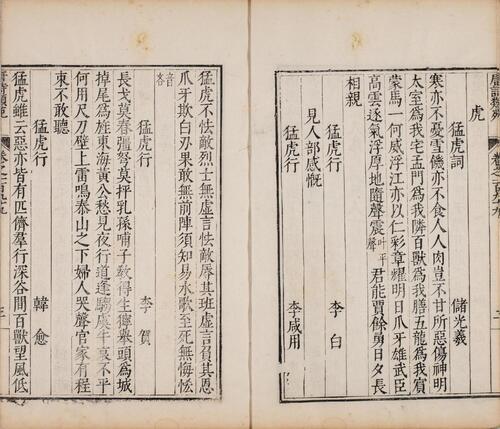 虎
猛虎詞 儲光羲
寒亦不憂雪饑亦不食人人肉豈不甘所惡傷神明
太室爲我宅孟門爲我隣百獸爲我膳五龍爲我賓
蒙馬一何威浮江亦以仁彩章耀明日爪牙雄武臣
高雲逐氣浮厚地隨聲震叶平聲君能賈餘勇日夕長
相親
猛虎行 李白
見人部感慨
猛虎行 李咸用
猛虎不怯敵烈士無虛言怯敵辱其班虛言負其恩
爪牙欺白刃果敢無前陣須知易水歌至死無悔恡
音吝
猛虎行 李賀
長戈莫舂彊弩莫抨乳孫哺子敎得生獰舉頭爲城
掉尾爲旌東海黃公愁見夜行道逢騶虞牛哀不平
何用尺刀壁上雷鳴泰山之下婦人哭聲官家有程
吏不敢聽
猛虎行 韓愈
猛虎雖云惡亦皆有匹儕羣行深谷間百獸望風低